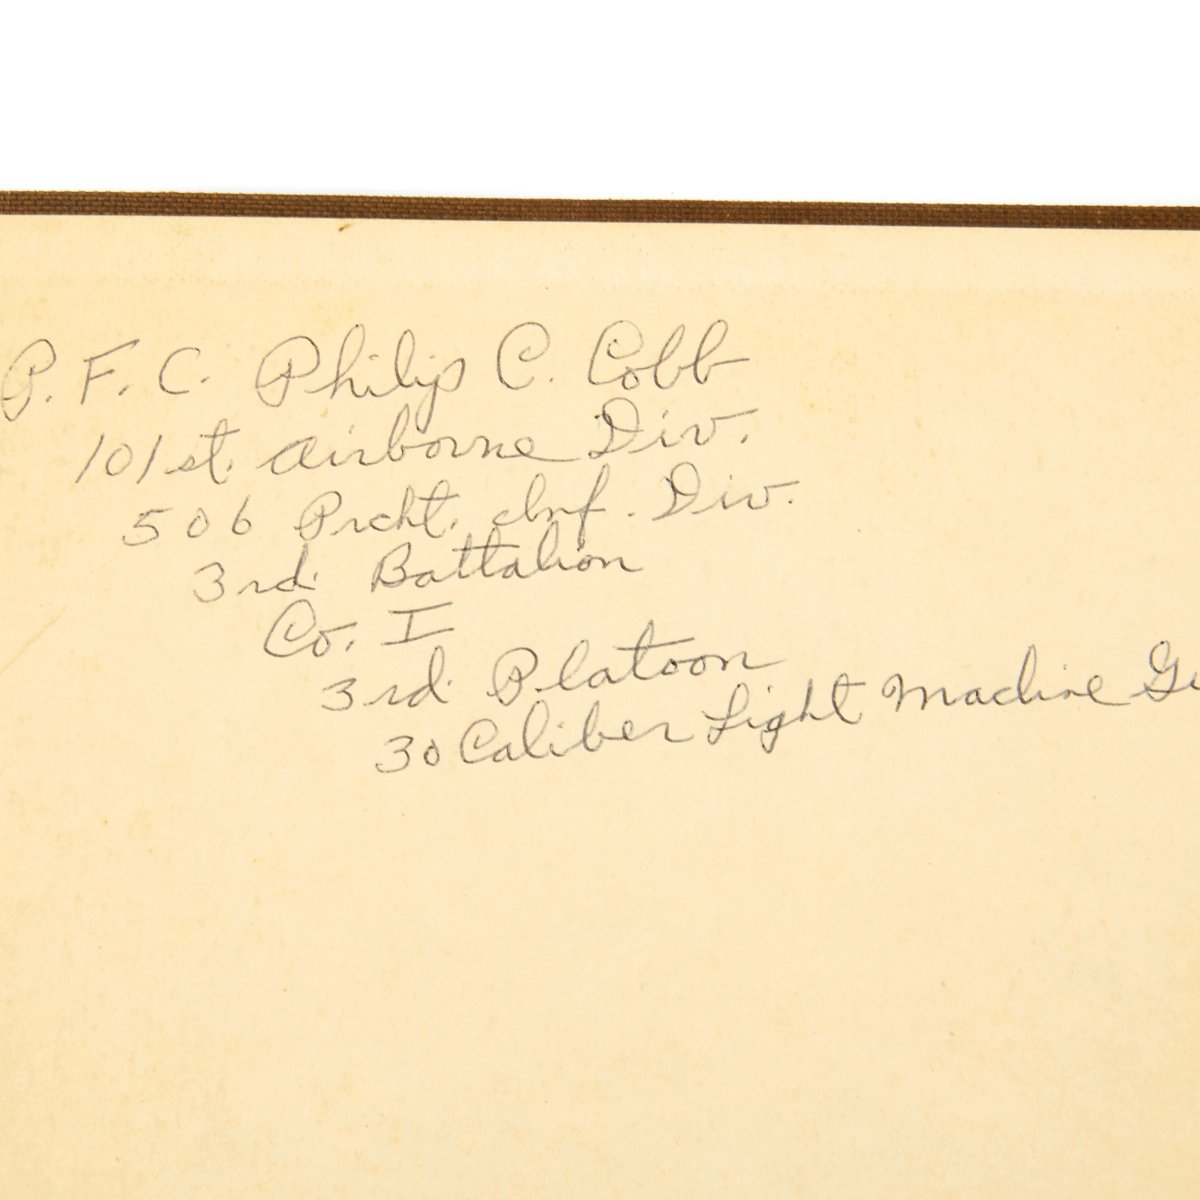 P. F. C. Philip C. Cobb
101st. Airborne Div.
506 Prcht. Inf. Div.
3rd. Battalion
Co. I
3rd. Platoon
30 Caliber Light Machine Gu